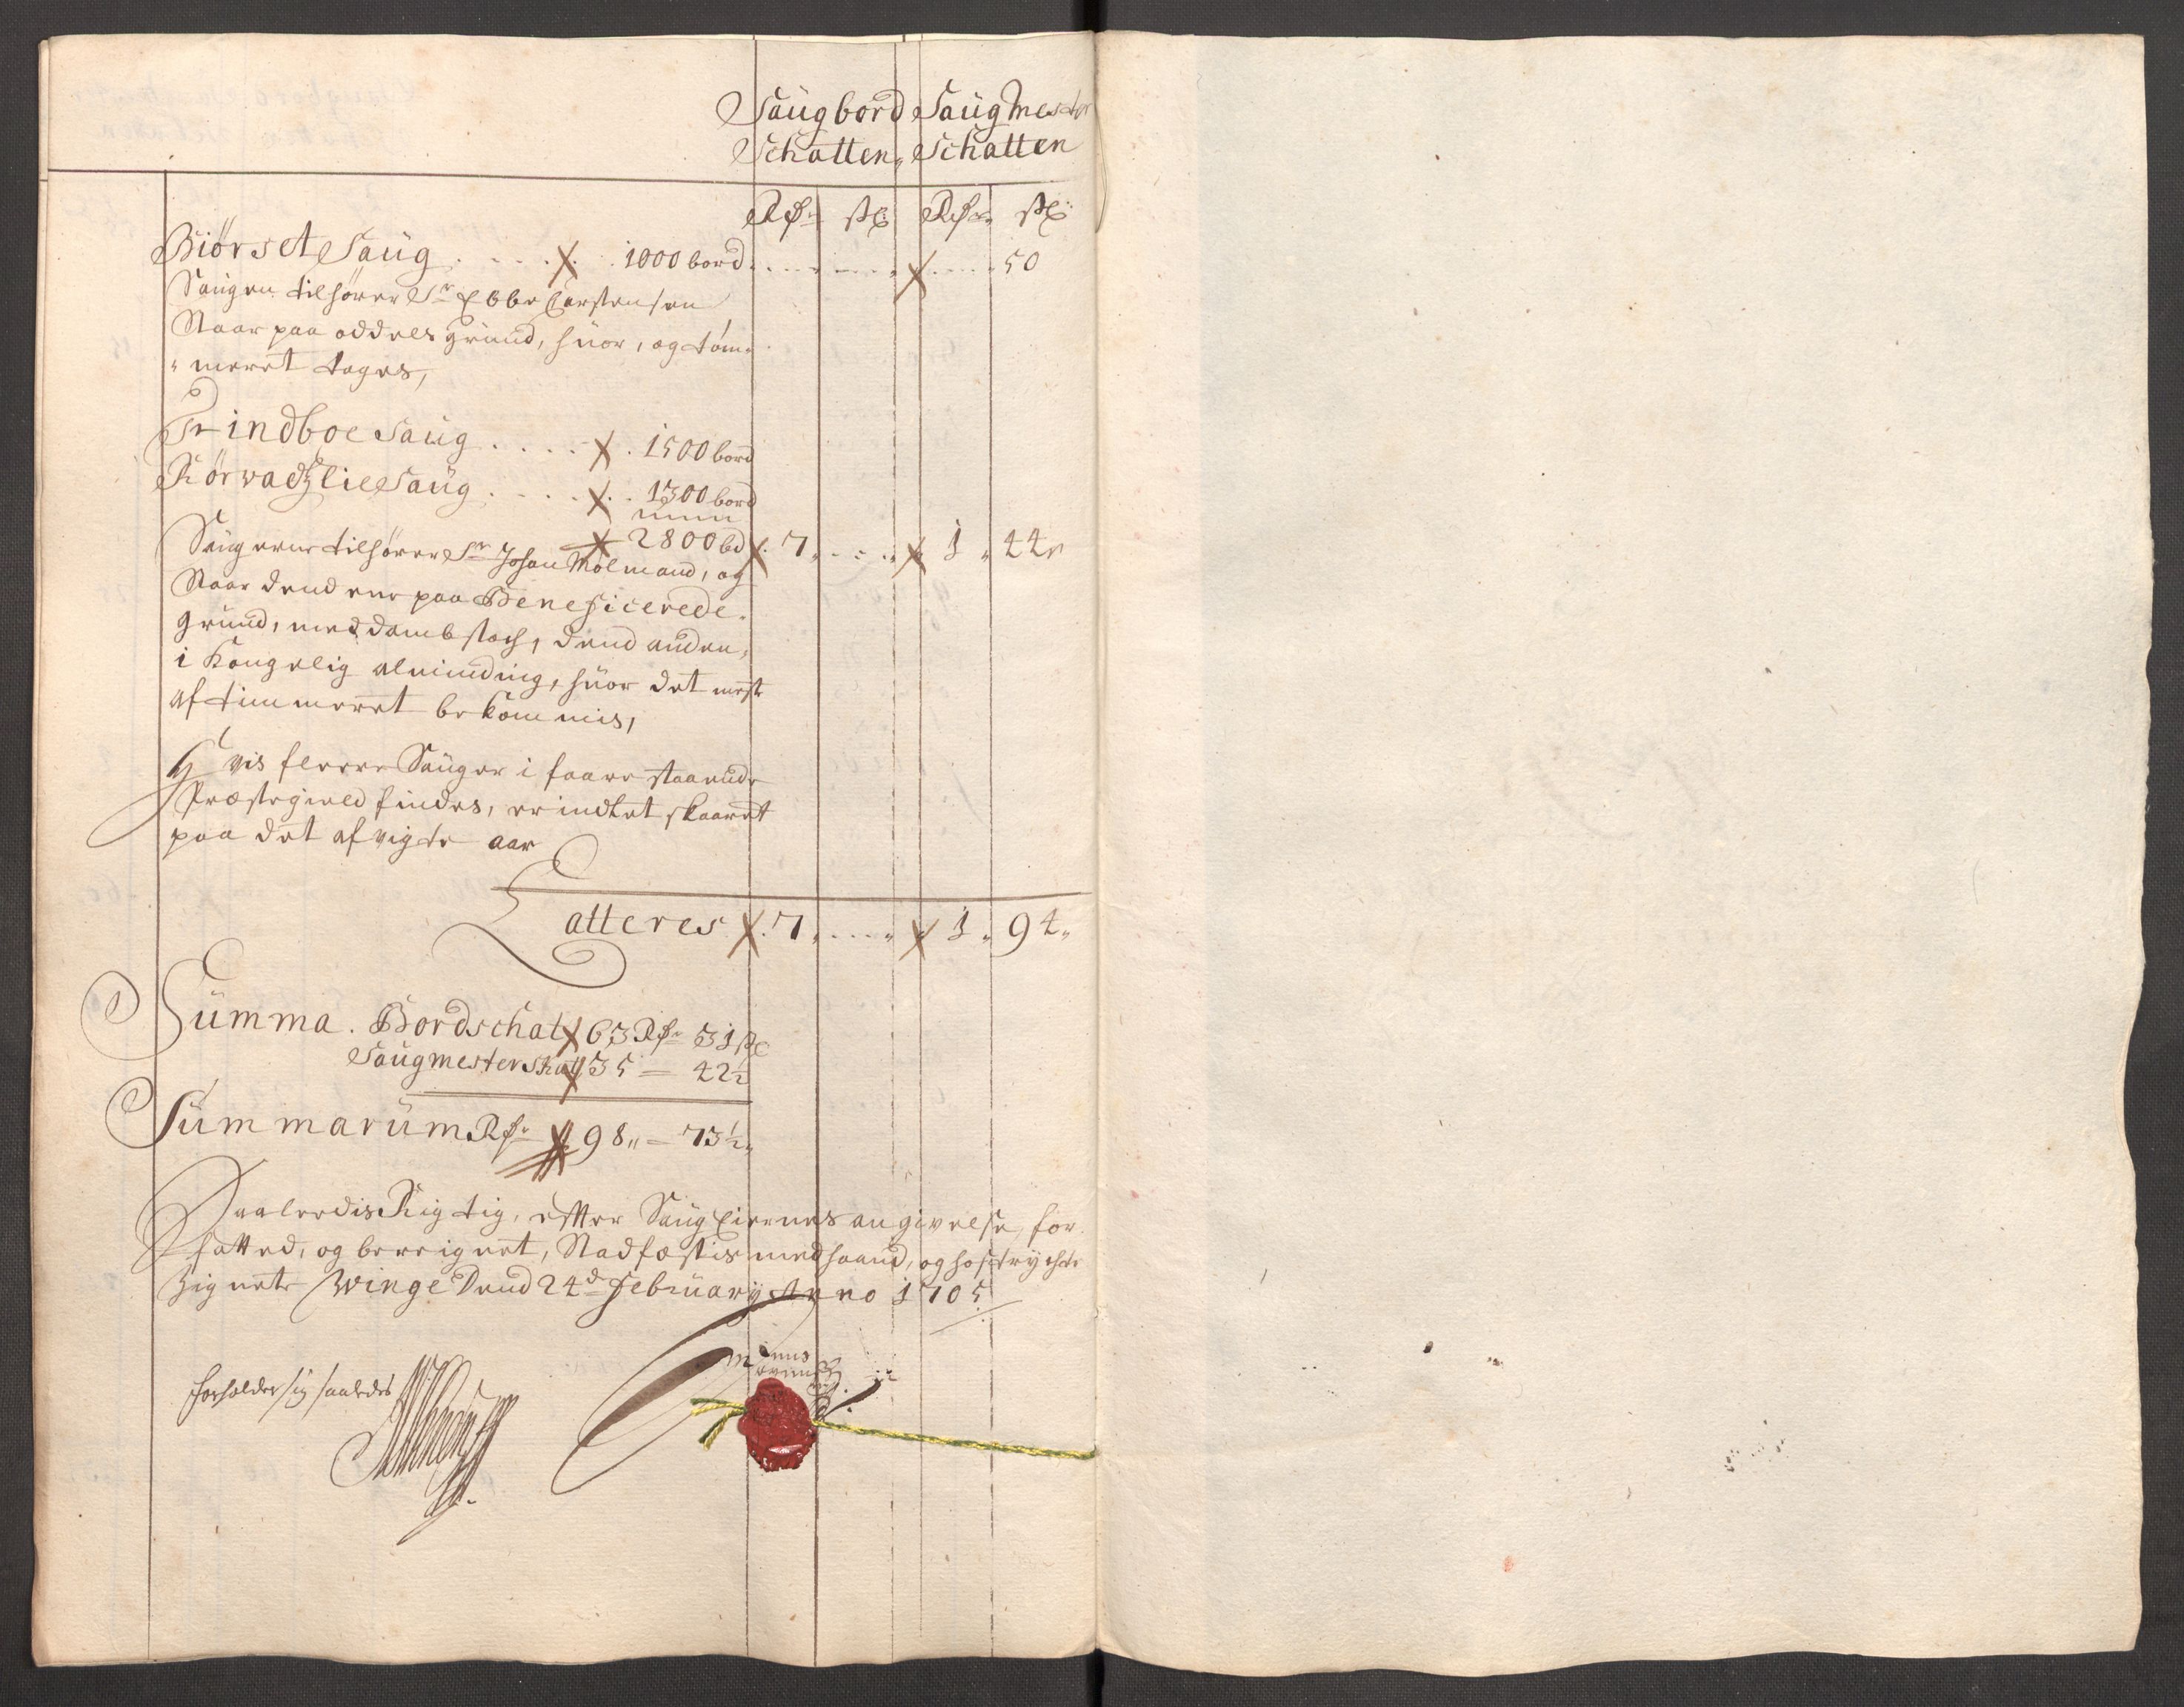 Saugbord Saugmester
Schatten, Schatten
Rdr sk: Rdr sk:
Biörset Saug . . . . 1000 bord . . . . . . 50
Saugen tilhører Sr Ebbe Carstensen
Staar paa oddels grund, huor, og töm-
meret tages,
Trindboe Saug . . . . . 1500 bord
Körvadzlie Saug . . . . . 1300 bord
2800 bd 7 „ . . . 1 „ 44„
Saugerne tilhører Sr Johan Molmand, og
Staar dend ene paa Beneficerede
grund, med dambstoch, dend anden,
i Kongelig alminding, huor det meste
af timmeret bekommis,
Hvis fleere Sauger i faare staaende
Præstegield findes, er indtet skaaret
paa det afvigte aar
Latteres 7 „ . . . . „ 1 „ 94„
Summa. Bordschat 63 Rdr 31 sk
Saugmesterskat 35 – 42½
Summarum Rdr 98„ – 73½„
Saaledis Rigtig, efter Saug Eiernes angivelse, for
fatted, og bereignet, Stadfæstis med haand, og hostrychte
Zignete Winge Dend 24d February Anno 1705
forholder sig saaledes